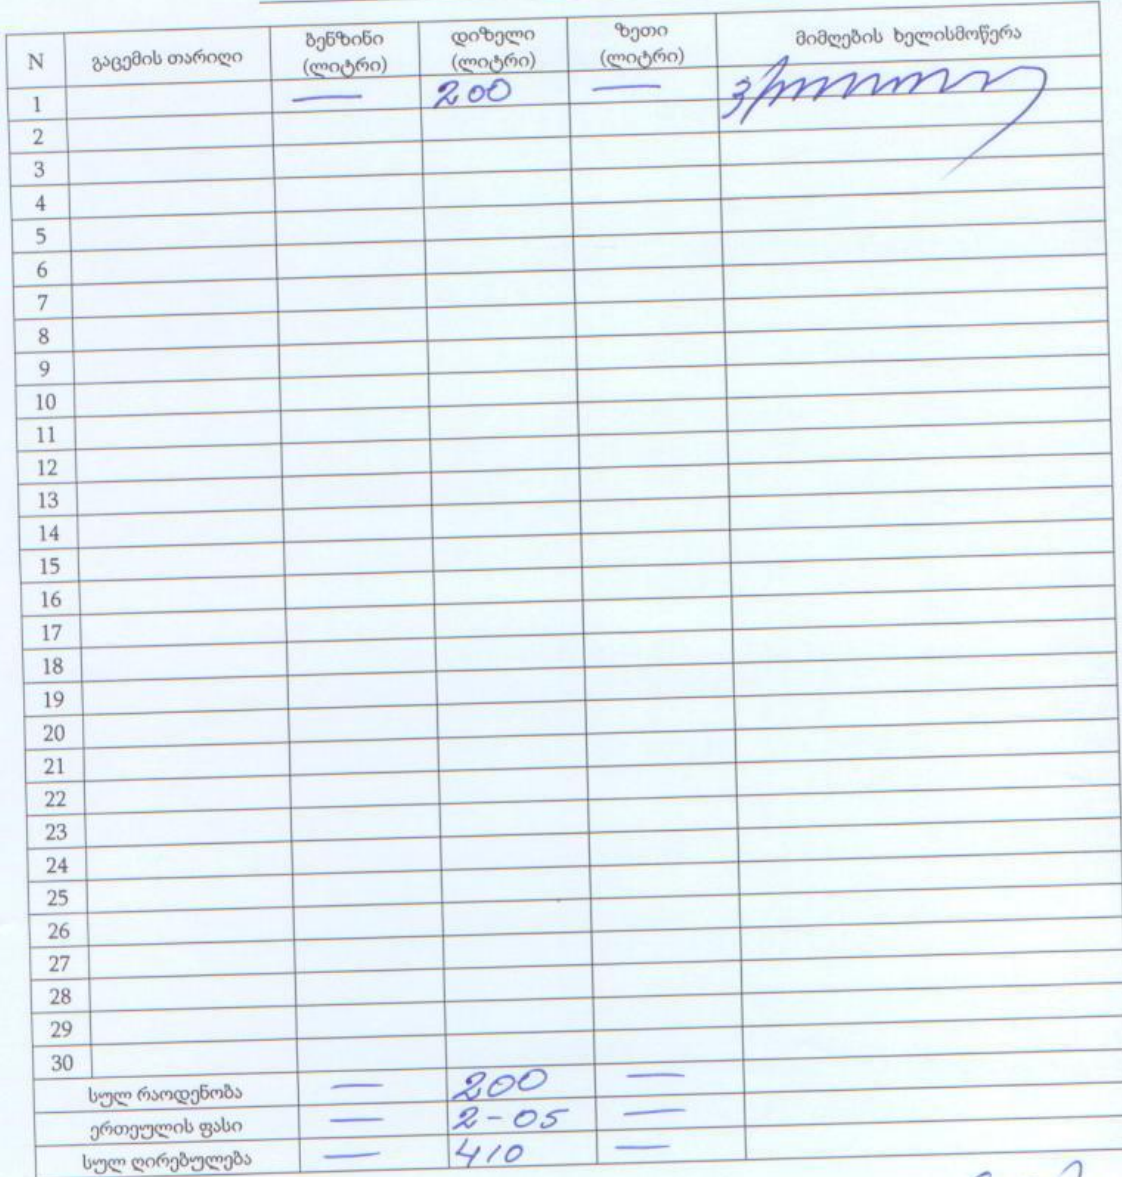 N გაცემის თარიღი ბენზინი (ლიტრი) დიზელი (ლიტრი) ზეთი (ლიტრი) მიმღების ხელისმოწერა
1 — 200 —
2
3
4
5
6
7
8
9
10
11
12
13
14
15
16
17
18
19
20
21
22
23
24
25
26
27
28
29
30
სულ რაოდენობა — 200 —
ერთეულის ფასი — 2-05 —
სულ ღირებულება — 410 —